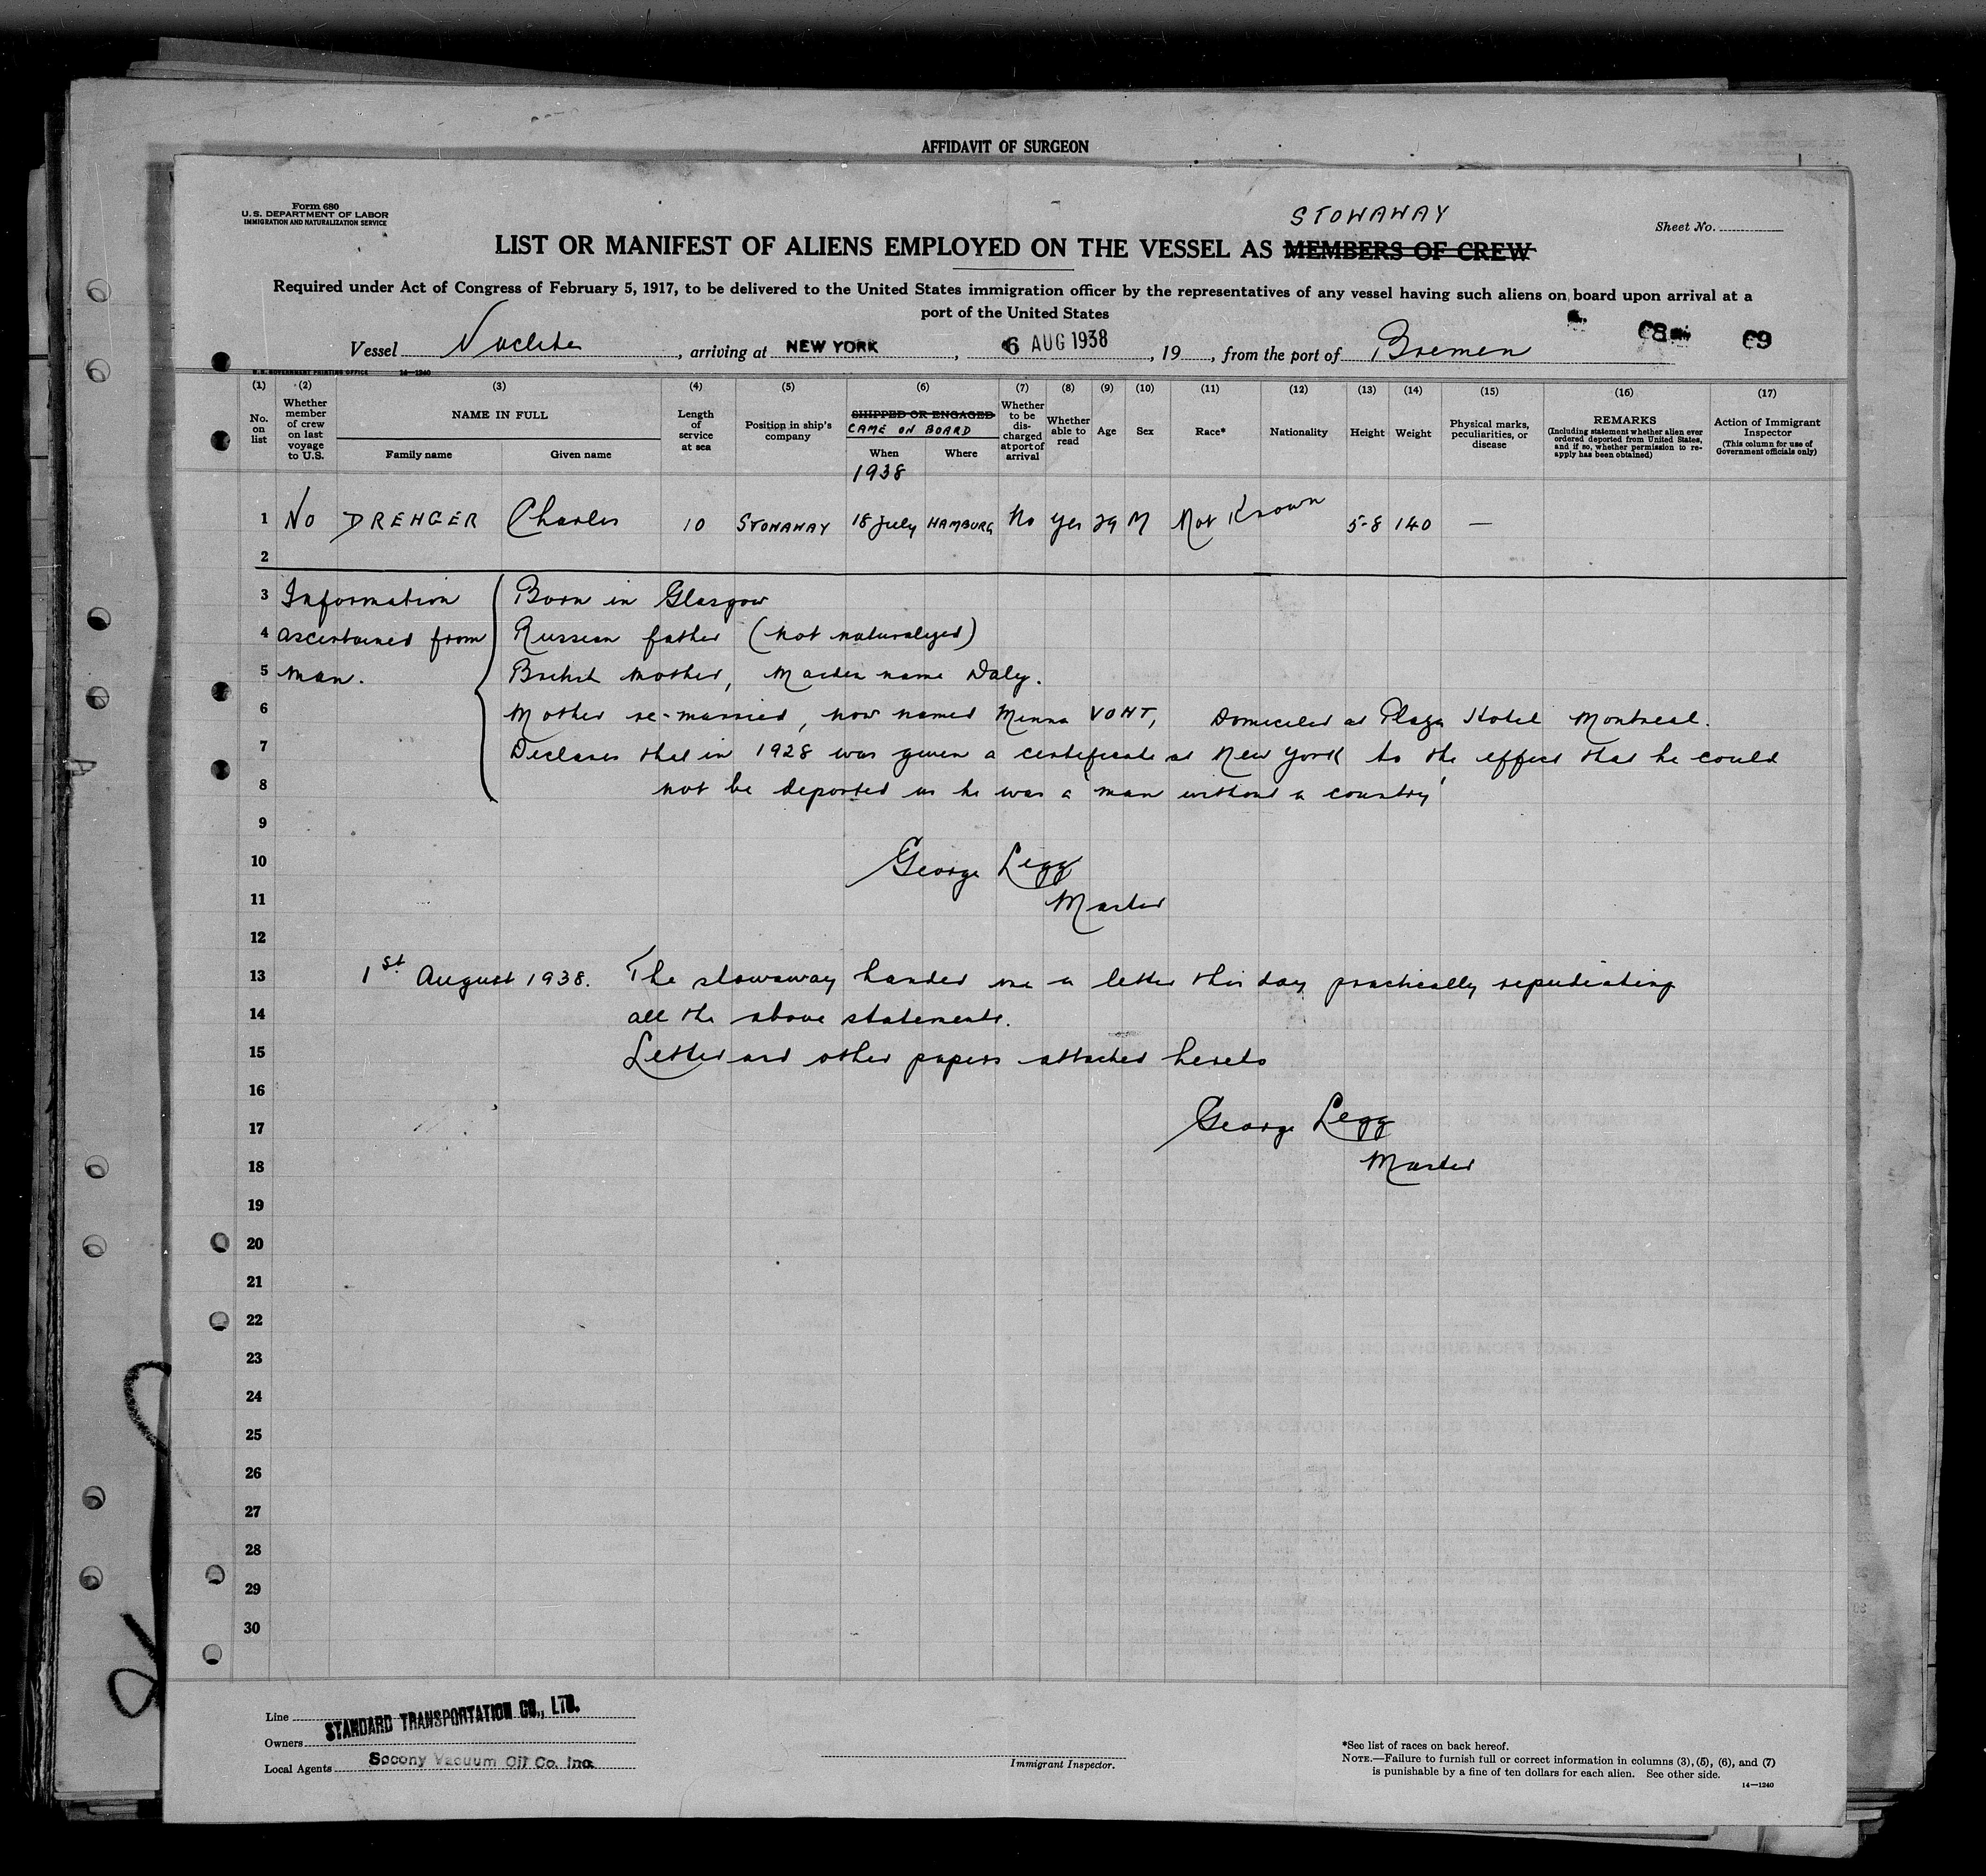 AFFIDAVIT OF SURGEON
Form 680
U. S. DEPARTMENT OF LABOR
IMMIGRATION AND NATURALIZATION SERVICE
STOWAWAY
Sheet No.
LIST OR MANIFEST OF ALIENS EMPLOYED ON THE VESSEL AS MEMBERS OF CREW
Required under Act of Congress of February 5, 1917, to be delivered to the United States immigration officer by the representatives of any vessel having such aliens on board upon arrival at a
port of the United States
Vessel , arriving at NEW YORK , 6 AUG 1938 , 19 , from the port of Bremen 68 69
U. S. GOVERNMENT PRINTING OFFICE 14—1240
(1) (2) (3) (4) (5) (6) (7) (8) (9) (10) (11) (12) (13) (14) (15) (16) (17)
No. on list
Whether member of crew on last voyage to U.S.
NAME IN FULL
Family name Given name
Length of service at sea
Position in ship's company
SHIPPED OR ENGAGED
CAME ON BOARD
When Where
1938
Whether to be discharged at port of arrival
Whether able to read
Age
Sex
Race*
Nationality
Height
Weight
Physical marks, peculiarities, or disease
REMARKS
(Including statement whether alien ever ordered deported from United States, and if so, whether permission to re-apply has been obtained)
Action of Immigrant Inspector
(This column for use of Government officials only)
1 No DRENGER Charles 10 STOWAWAY 18 July HAMBURG No Yes 29 M Not Known 5-8 140 —
2
3 Information Born in Glasgow
4 ascertained from Russian father (not naturalized)
5 man. British mother, maiden name Daly.
6 Mother re-married, now named Minna VOHT, Domiciled at Plaza Hotel Montreal.
7 Declares that in 1928 was given a certificate at New York to the effect that he could
8 not be deported as he was a 'man without a country'
9
10 George Legg
11 Master
12
13 1st August 1938. The stowaway handed me a letter this day practically repudiating
14 all the above statements.
15 Letter and other papers attached hereto
16
17 George Legg
18 Master
19
20
21
22
23
24
25
26
27
28
29
30
Line
STANDARD TRANSPORTATION CO., LTD.
Owners
Local Agents Socony Vacuum Oil Co. Inc.
Immigrant Inspector.
*See list of races on back hereof.
NOTE.—Failure to furnish full or correct information in columns (3), (5), (6), and (7)
is punishable by a fine of ten dollars for each alien. See other side.
14—1240